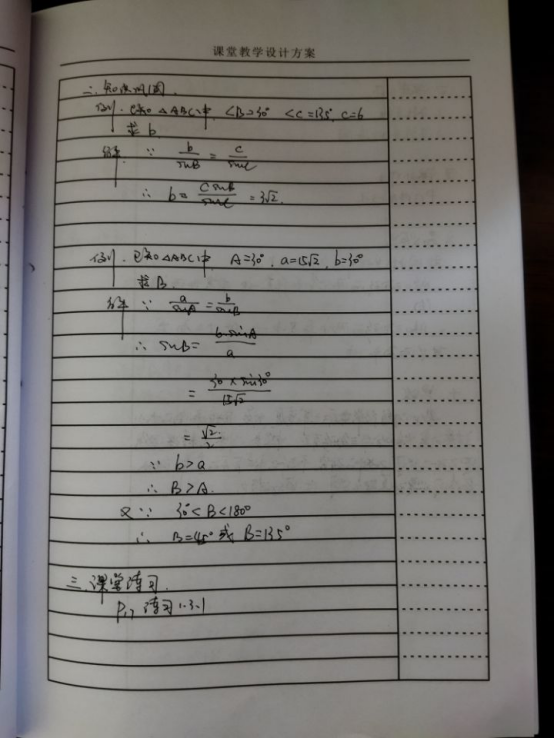 课堂教学设计方案
二、知识巩固
例1. 已知△ABC中, <B=30° <C=135°, c=6
求b
解 ∵ b/sinB = c/sinC
∴ b= c sinB/sinC = 3√2.
例1. 已知△ABC中 A=30°, a=15√2, b=30°
求B
解 ∵ a/sinA = b/sinB
∴ sinB= b·sinA/a
= 30×sin30°/15√2
= √2/2
∵ b>a
∴ B>A
又∵ 30°<B<180°
∴ B=45°或B=135°
三.课堂练习
练习1.3.1